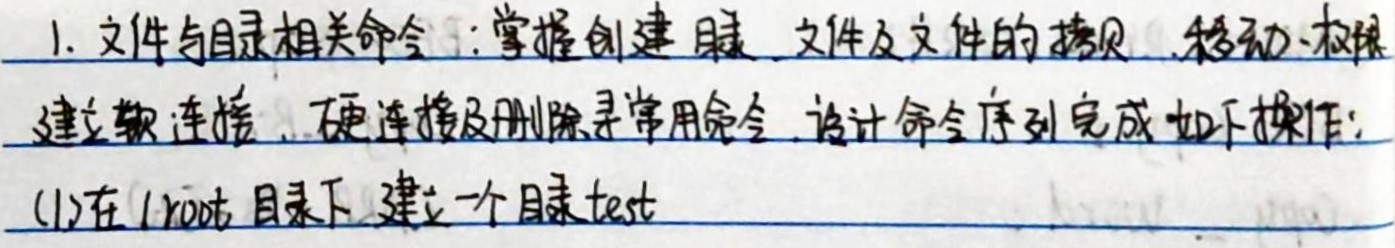 1. 文件与目录相关命令:掌握创建目录、文件及文件的拷贝、移动、权限
建立软连接、硬连接及删除寻常用命令、设计命令序列完成如下操作:
(1)在/root目录下建立一个目录test